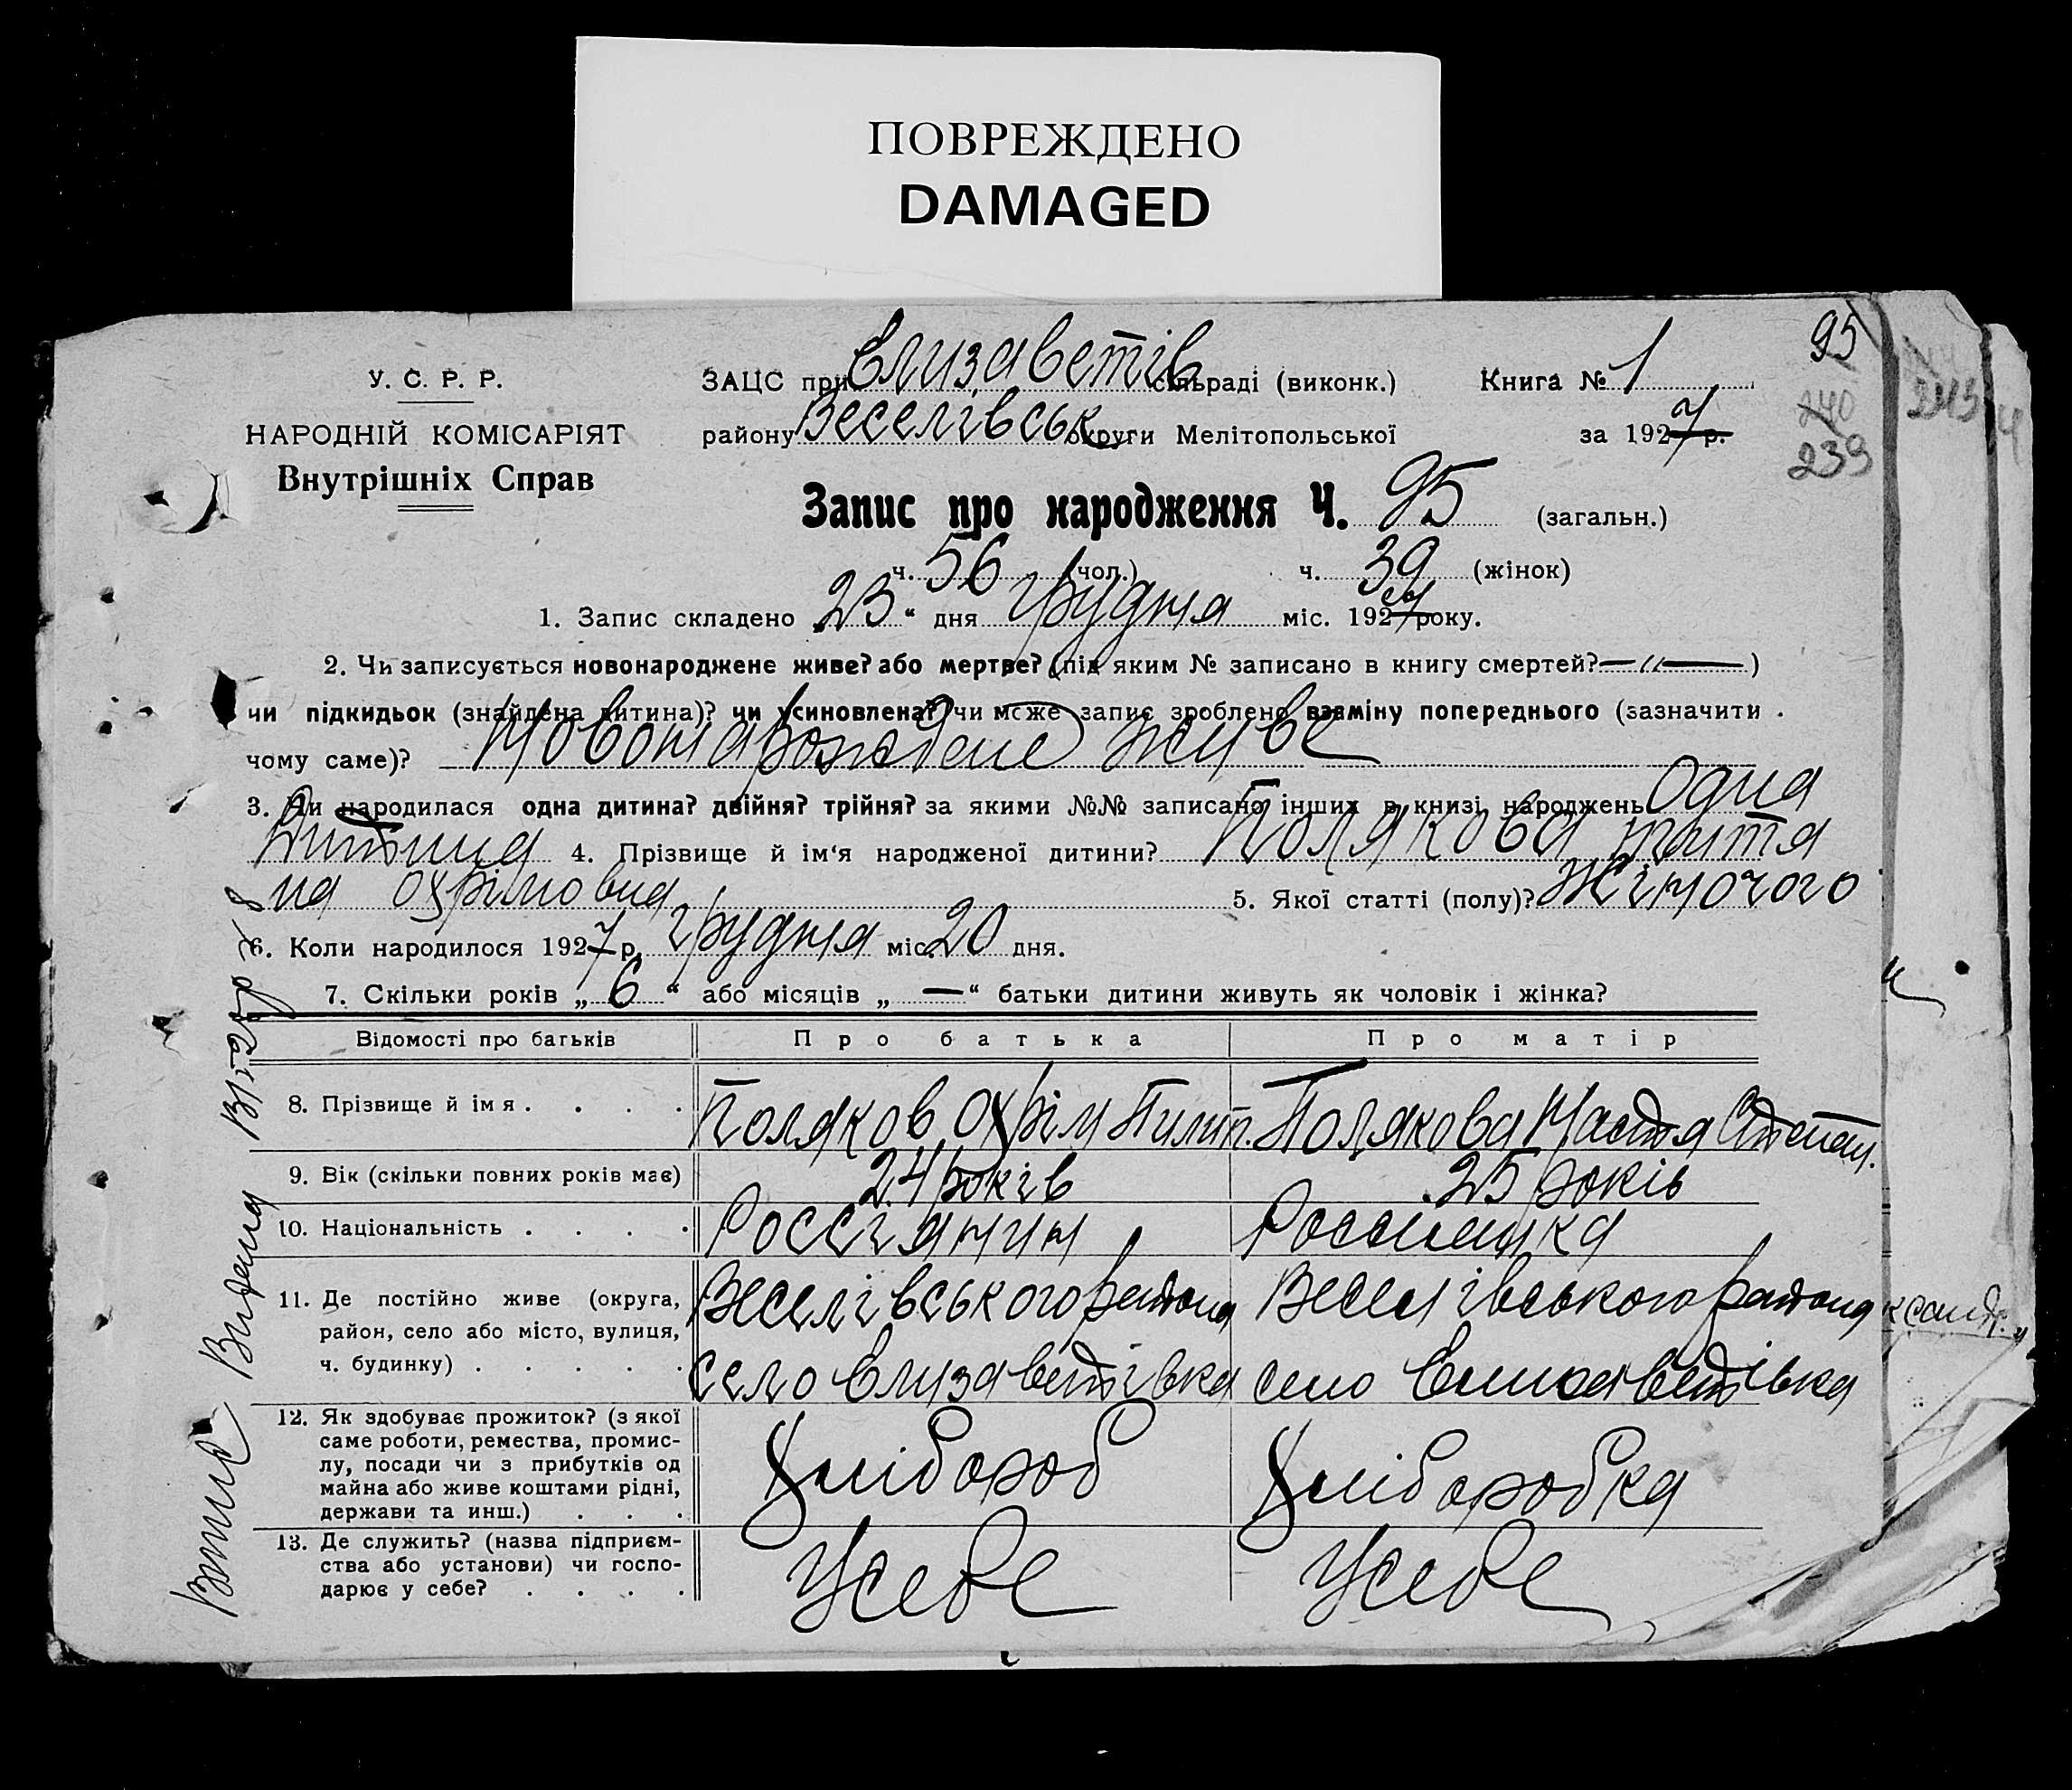 ПОВРЕЖДЕНО
DAMAGED
95
У. С. Р. Р.
НАРОДНІЙ КОМІСАРІЯТ
Внутрішніх Справ
ЗАЦС при Єлизаветів сільраді (виконк.) Книга № 1
240
239
243
району Веселівськ округи Мелітопольської за 1927 р.
Запис про народження Ч. 95 (загальн.)
ч. 56 (чол.) ч. 39 (жінок)
1. Запис складено 23 “ дня грудня міс. 1927 року.
2. Чи записується новонароджене живе? або мертве? (під яким № записано в книгу смертей? —〃— )
чи підкидьок (знайдена дитина)? чи усиновлена? чи може запис зроблено взаміну попереднього (зазначити
чому саме)? Новонарождене живе
3. Чи народилася одна дитина? двійня? трійня? за якими №№ записано інших в книзі народжень Одна
Дитина 4. Прізвище й ім‘я народженої дитини? Полякова
на Охрімовна 5. Якої статті (полу)? Жіночого
6. Коли народилося 1927 р. грудня міс. 20 дня.
7. Скільки років „ 6 “ або місяців „ — “ батьки дитини живуть як чоловік і жінка?
Відомості про батьків Про батька Про матір
8. Прізвище й імя . . . . Поляков Охрім Пилип. Полякова Настя Степан.
9. Вік (скільки повних років має) 24 років 25 років
10. Національність . . . . Россіянин Россиянка
11. Де постійно живе (округа, район, село або місто, вулиця, ч. будинку) . . . . . Веселівського района село Єлизаветівка Веселівського района село Єлизаветівка
12. Як здобуває прожиток? (з якої саме роботи, ремества, промислу, посади чи з прибутків од майна або живе коштами рідні, держави та инш.) . . . Хлібороб Хліборобка
13. Де служить? (назва підприємства або установи) чи господарює у себе? . . . . У себе У себе
Видана